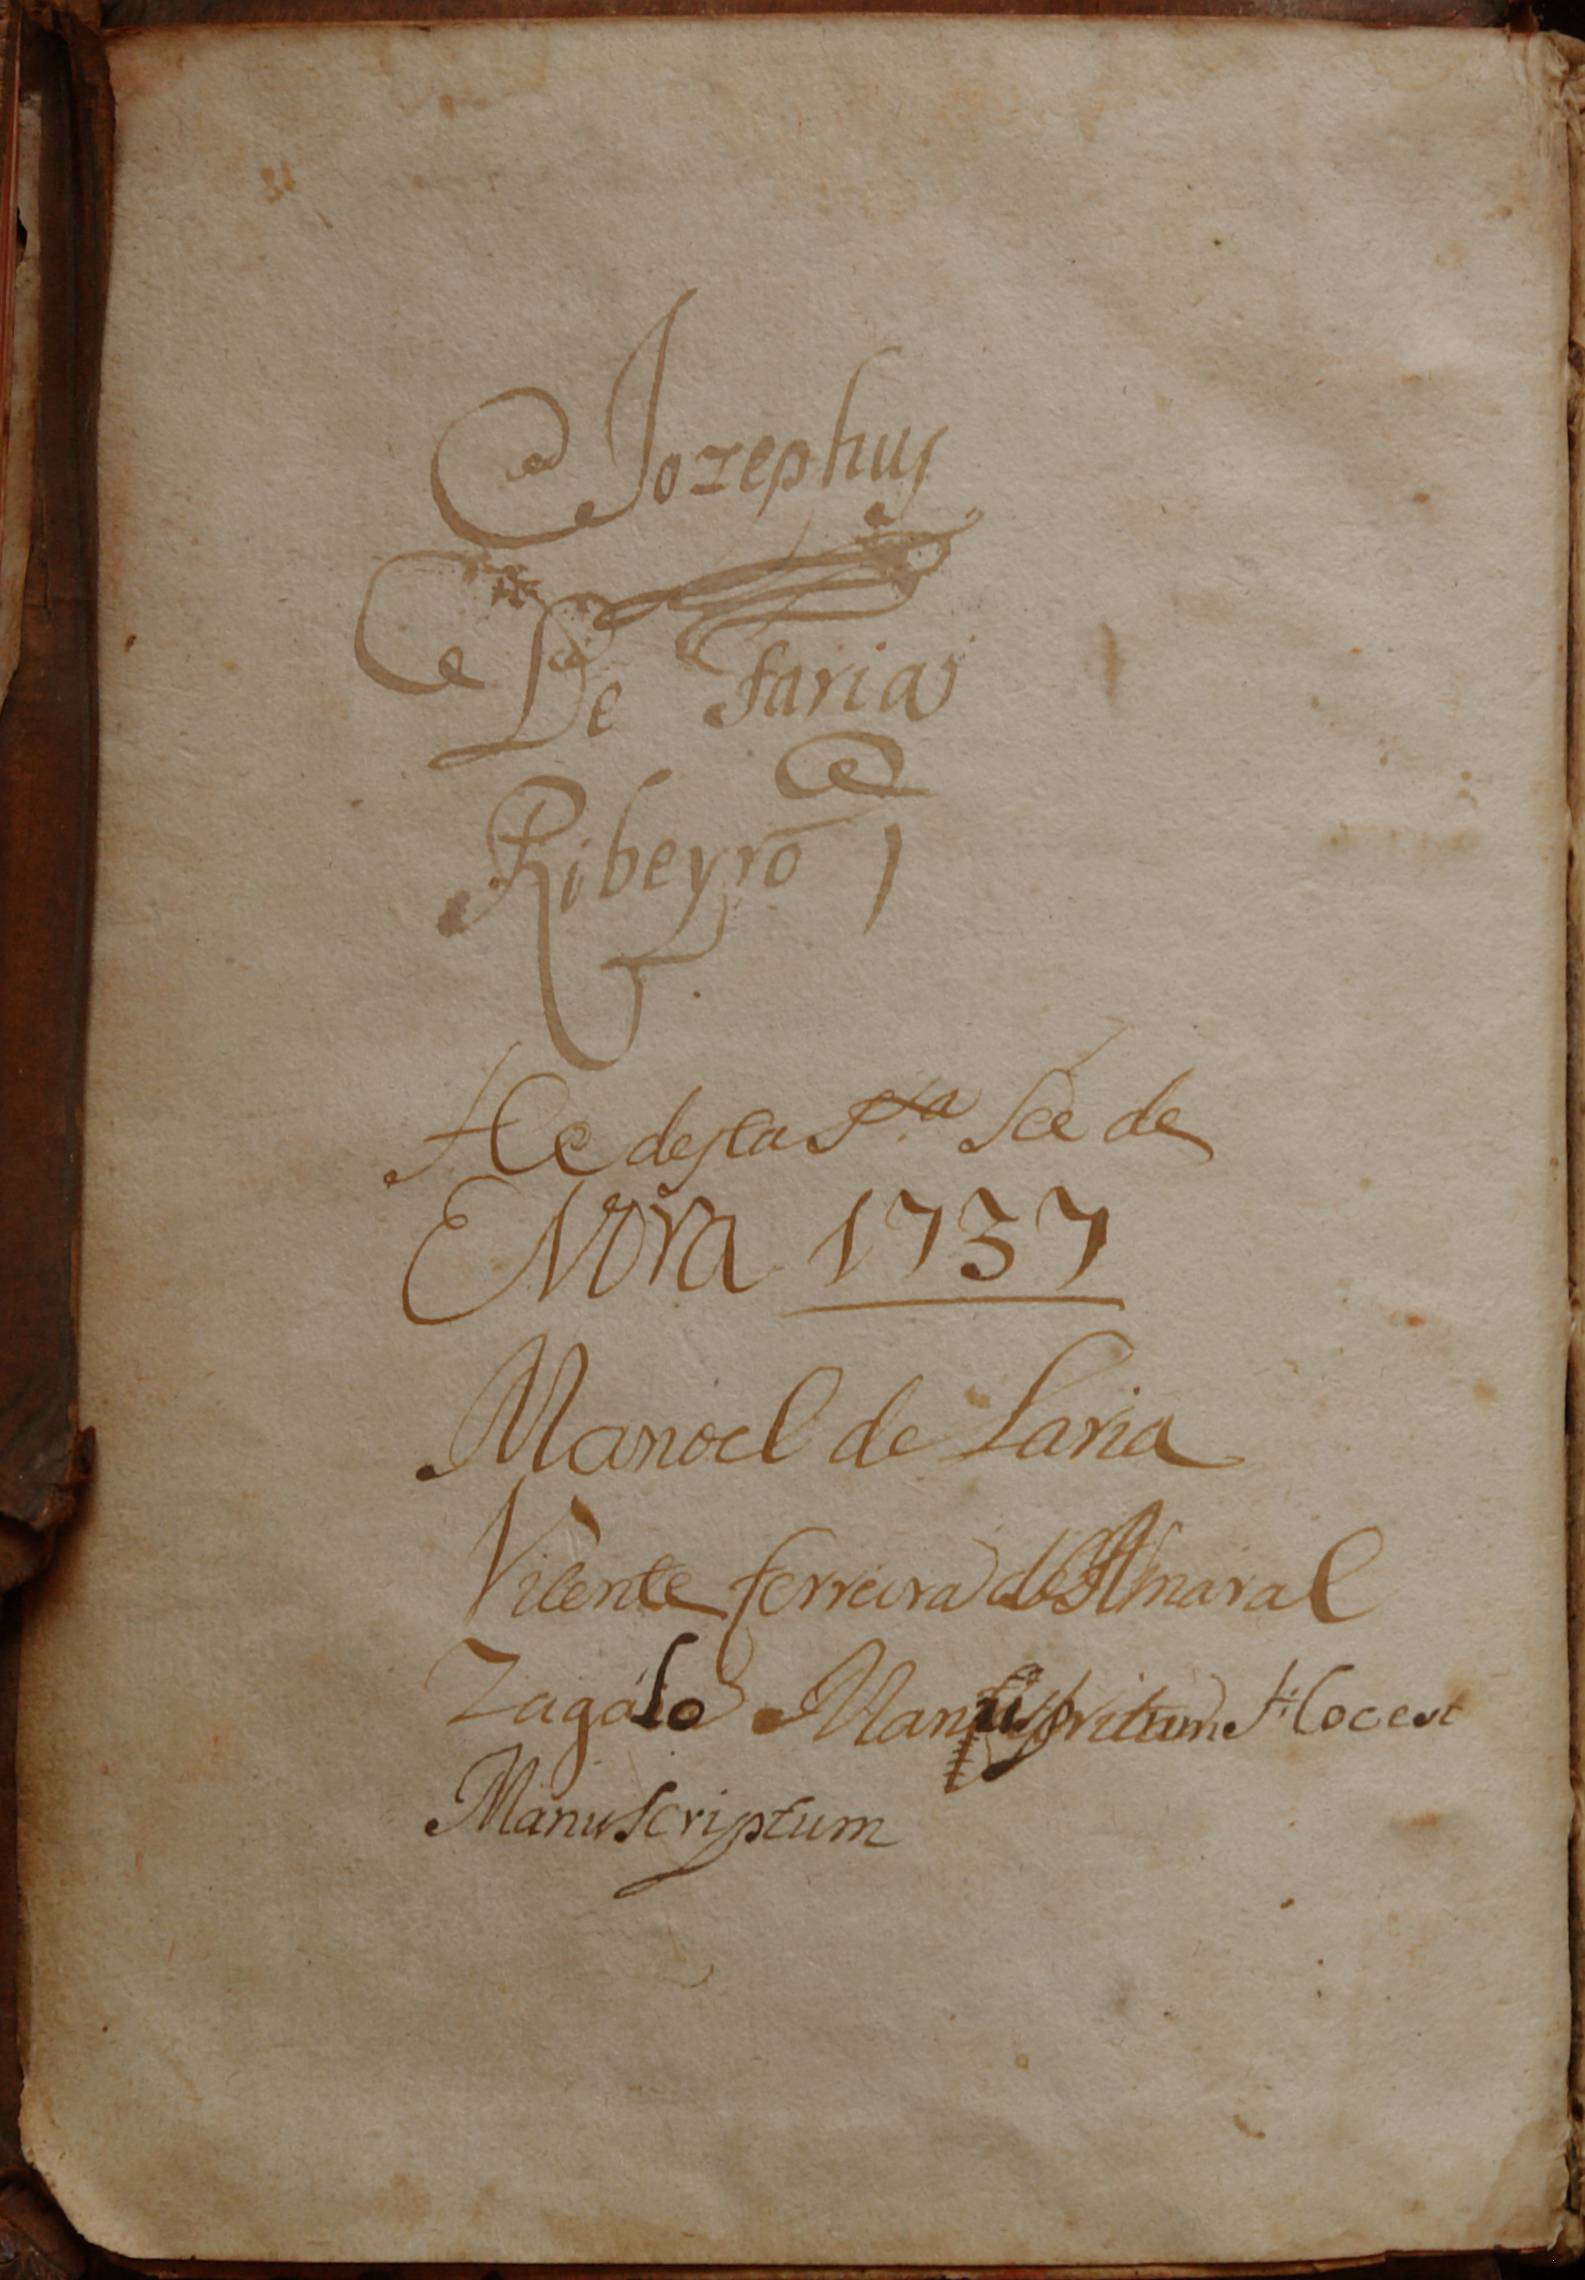 Jozephus
De Farias
Ribeyro
He desta Sta See de
EVora 1737
Manoel de Faria
Vicente ferreira de Amaral
Zagalo Hoc est
Manuscriptum